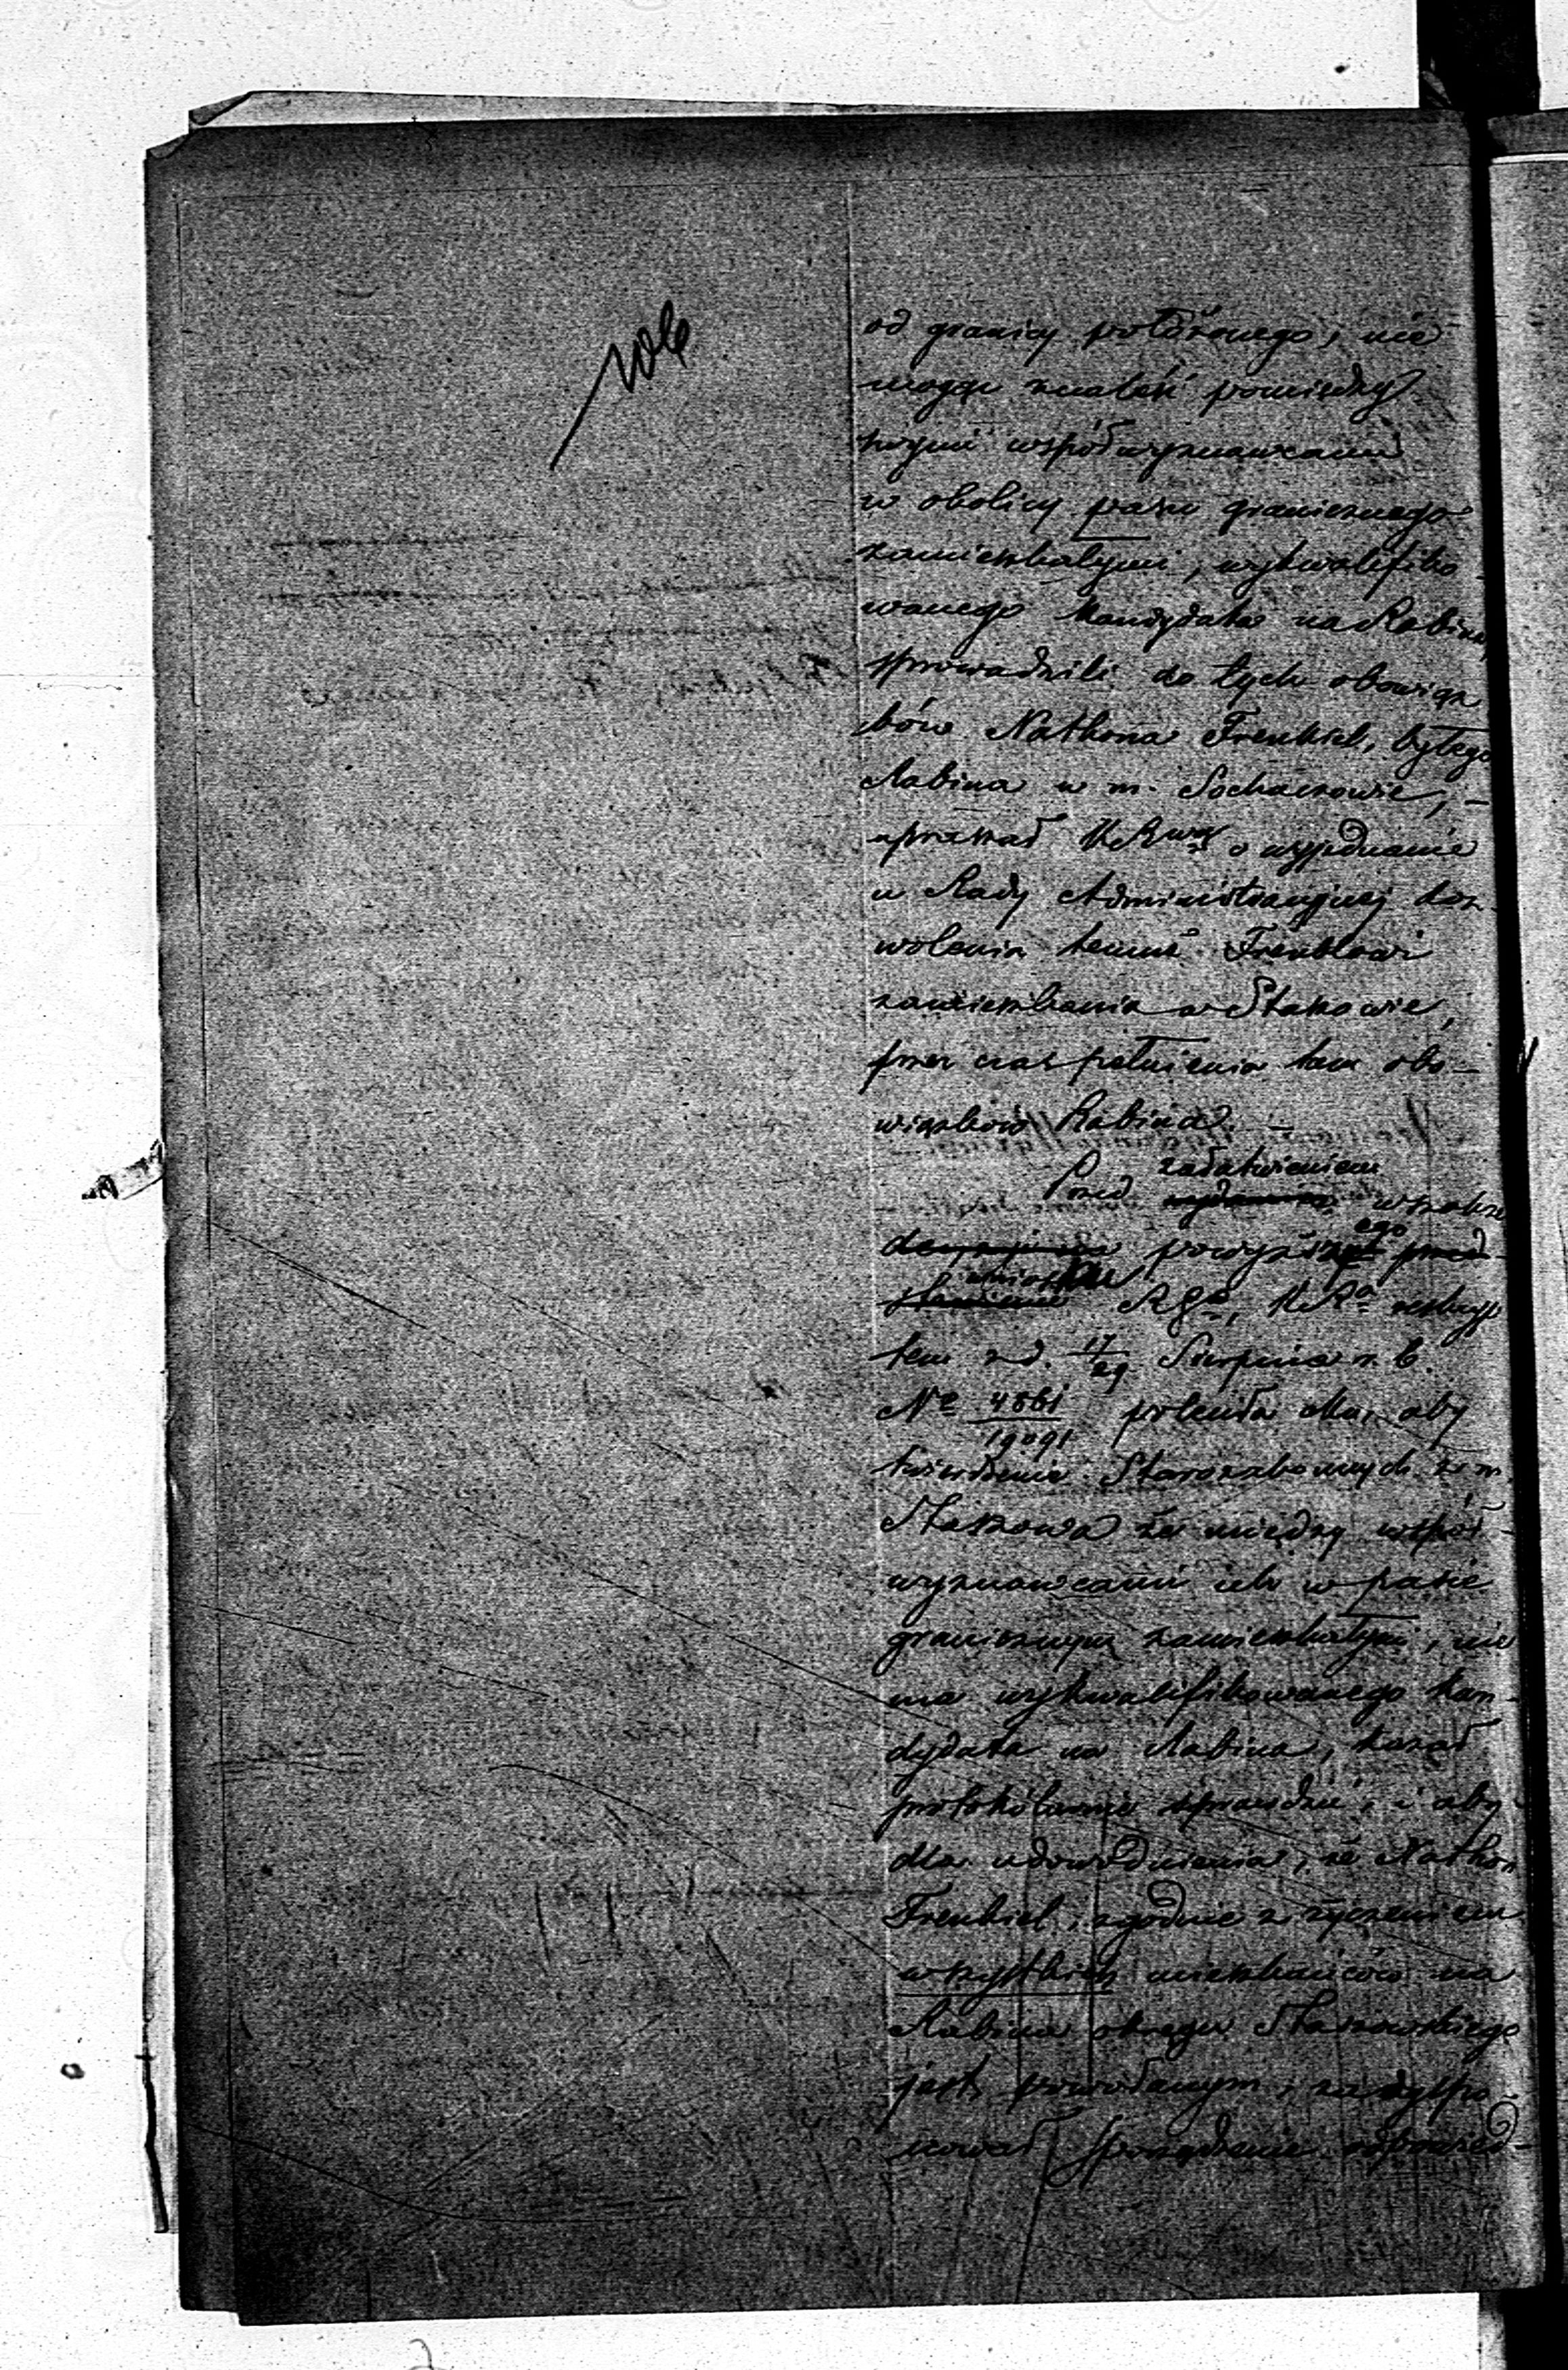 od granicy położonego, nie
mogąc znaleść pomiędzy
swymi współwyznawcami
w okolicy pasu granicznego
zamieszkałymi, wykwalifiko-
wanego Kandydata na Rabina,
sprowadzili do tych obowiąz
ków Nathana Frenkiel, byłego
Rabina w m. Sochaczewie, —
upraszał KR o wyjednanie
u Rady Administracyjnej doz-
wolenia temuż Frenklowi
zamieszkania w Staszowie,
przez czas pełnienia tam obo-
wiązków Rabina. —
załatwieniem
Przed wydaniem wszakże
decyzyi powyższego przed-
wniosku
stawienia RGo, KRa reskryp
tem z d. 17/29 Sierpnia r. b.
No 4561/19091 poleciła Mu, aby
twierdzenie Starozakonnych z m.
Staszowa że między współ-
wyznawcami ich w pasie
granicznym zamieszkałymi, nie
ma wykwalifikowanego kan-
dydata na Rabina, kazał
protokólarnie sprawdzić, i aby
dla udowodnienia, że Nathan
Frenkiel, zgodnie z życzeniem
wszystkich mieszkańców na
Rabina okręgu Staszowskiego
jest powołanym, zadyspo-
nował sporządzenie odpowied-